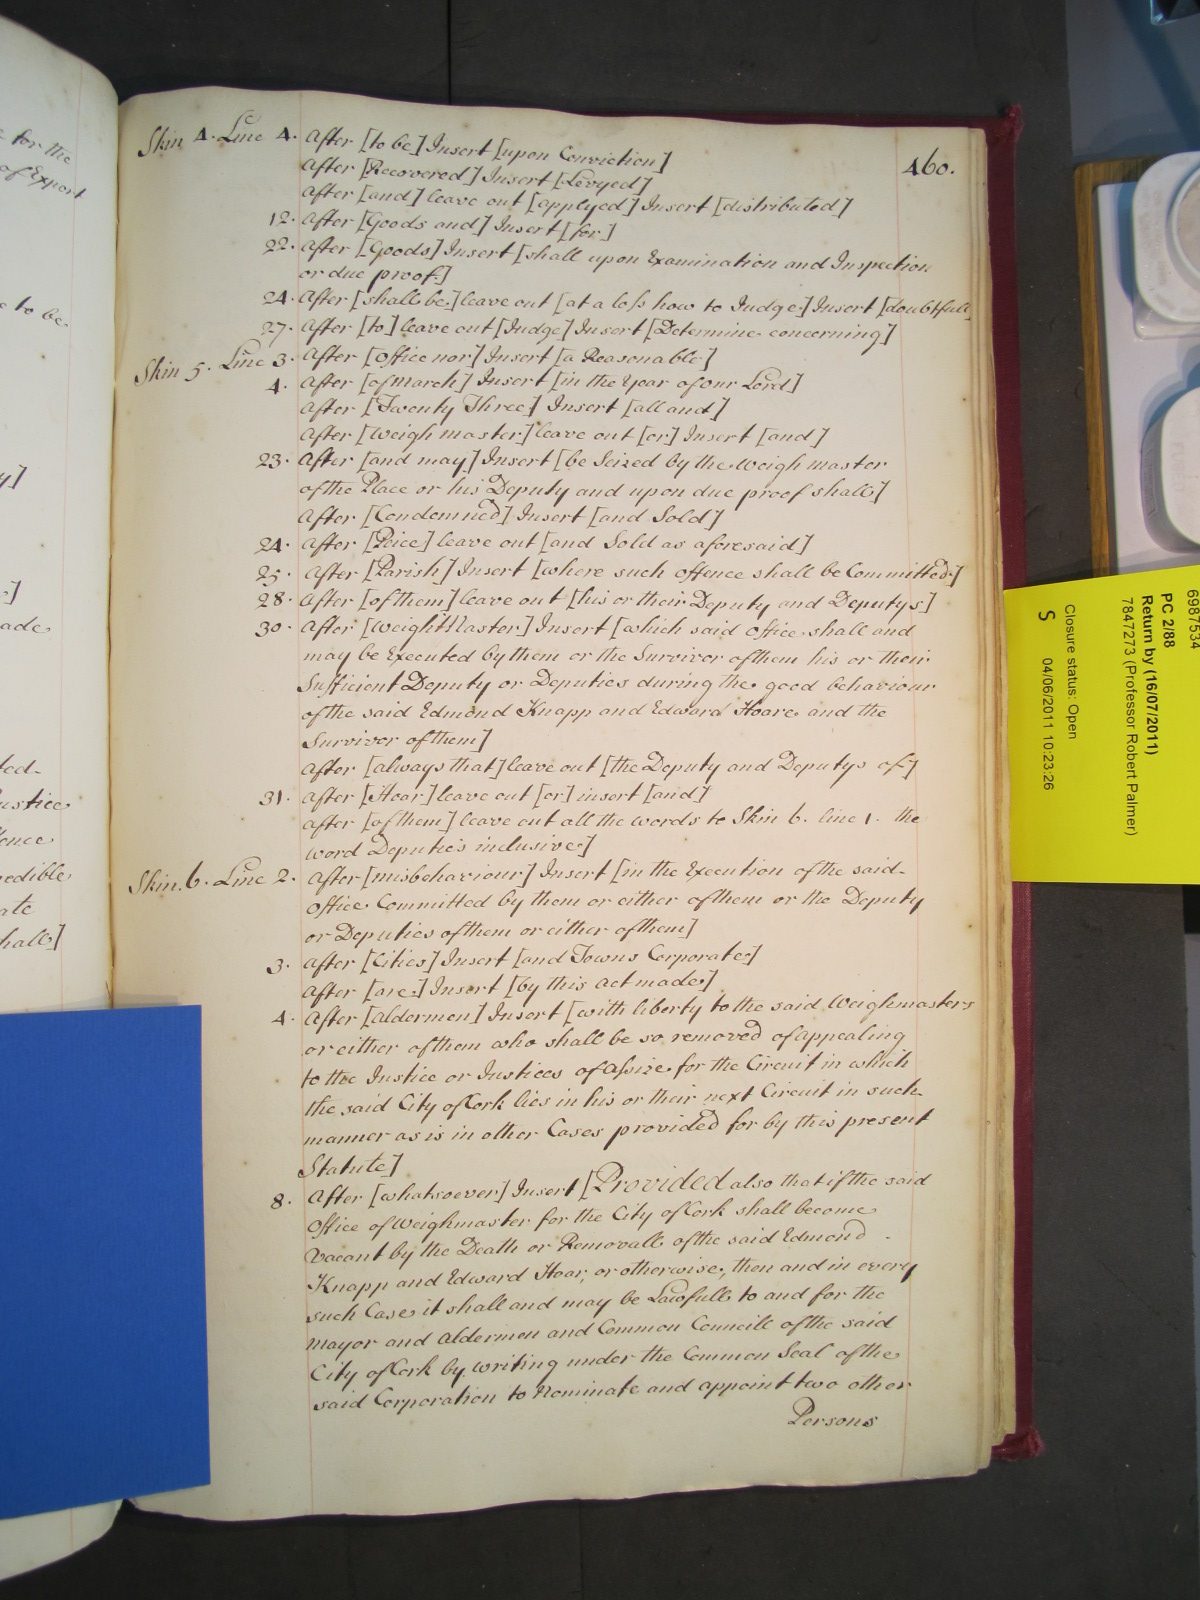 460.
Skin 4. Line 4. After [to be] Insert [upon Conviction]
After [Recovered] Insert [Levyed]
After [and] leave out [applyed] Insert [distributed]
12. After [Goods and] Insert [for]
22. After [Goods] Insert [shall upon Examination and Inspection
or due proof]
24. After [shall be] leave out [at a loss how to Judge] Insert [doubtfull]
27. After [to] leave out [Judge] Insert [Determine concerning]
Skin 5. Line 3. After [Office nor] Insert [a Reasonable]
4. After [of March] Insert [in the Year of our Lord]
After [Twenty Three] Insert [all and]
After [Weighmaster] leave out [or] Insert [and]
23. After [and may] Insert [be Seized by the Weighmaster
of the Place or his Deputy and upon due proof shall]
After [Condemned] Insert [and Sold]
24. After [Price] leave out [and Sold as aforesaid]
25. After [Parish] Insert [where such Offence shall be Committed]
28. After [of them] leave out [his or their Deputy and Deputys]
30. After [WeightMaster] Insert [which said Office shall and
may be Executed by them or the Survivor of them his or their
Sufficient Deputy or Deputies during the good behaviour
of the said Edmond Knapp and Edward Hoare and the
Survivor of them]
After [always that] leave out [the Deputy and Deputys of]
31. After [Hoar] leave out [or] insert [and]
After [of them] leave out all the words to Skin 6. line 1. the
word Deputies inclusive]
Skin. 6. Line 2. After [misbehaviour] Insert [in the Execution of the said
Office Committed by them or either of them or the Deputy
or Deputies of them or either of them]
3. After [Cities] Insert [and Towns Corporate]
After [are] Insert [by this Act made]
4. After [Aldermen] Insert [with liberty to the said Weighmasters
or either of them who shall be so removed of appealing
to the Justice or Justices of Assize for the Circuit in which
the said City of Cork lies in his or their next Circuit in such
manner as is in other Cases provided for by this present
Statute]
8. After [whatsoever] Insert [Provided also that if the said
Office of Weighmaster for the City of Cork shall become
Vacant by the Death or Removall of the said Edmond
Knapp and Edward Hoar, or otherwise, then and in every
such Case it shall and may be Lawfull to and for the
Mayor and Aldermen and Common Councill of the said
City of Cork by writing under the Common Seal of the
said Corporation to Nominate and appoint two other
Persons
e for the
of Export
e to be
y]
ade
ted-
ustice
ence
redible
ate
hall]
6987534
PC 2/88
Return by (16/07/2011)
7847273 (Professor Robert Palmer)
Closure status: Open
S 04/06/2011 10:23:26